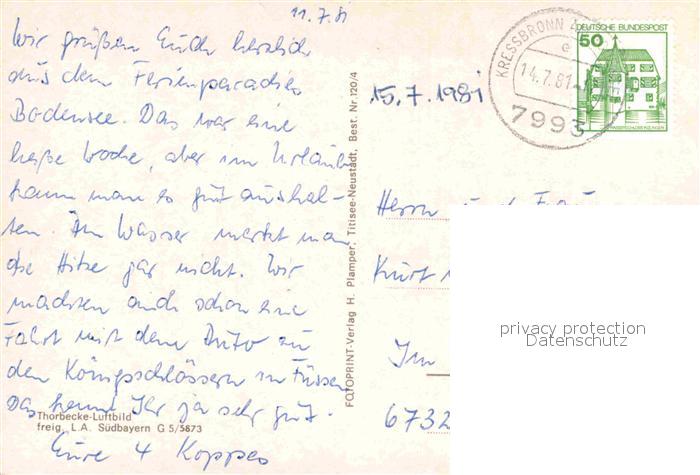 11.7.81
Wir grüßen Euch herzlich
aus dem Ferienparadies
Bodensee. Das war eine
heiße Woche, aber im Urlaub
kann man es gut aushal-
ten. Im Wasser merkt man
die Hitze gar nicht. Wir
machten auch schon eine
Fahrt mit dem Auto zu
den Königsschlössern in Füssen
Das kennt Ihr ja sehr gut.
Eure 4 Koppes
Thorbecke-Luftbild
freig. L.A. Südbayern G 5/5873
FOTOPRINT-Verlag H. Plamper, Titisee-Neustadt, Best. Nr. 120/4
15.7.1981
KRESSBRONN
e
14.7.81
7993
DEUTSCHE BUNDESPOST
50
WASSERSCHLOSS INZLINGEN
Herrn u. Frau
Kurt
Im
6732
privacy protection
Datenschutz